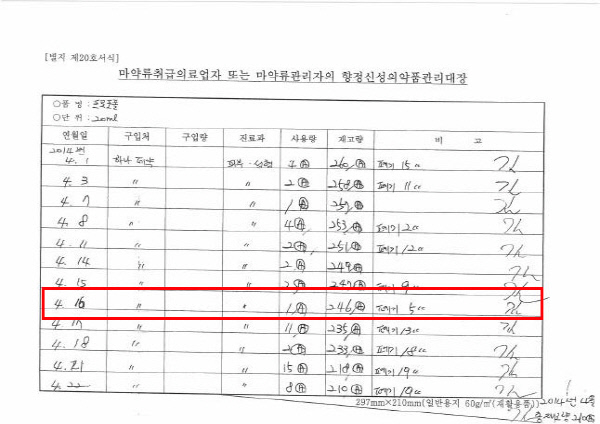 [별지 제20호서식]
마약류취급의료업자 또는 마약류관리자의 향정신성의약품관리대장
○품 명 : 프로포폴
○단 위 : 20ml
연월일 구입처 구입량 진료과 사용량 재고량 비 고
2014년
4. 1 하나제약 피부·성형 260 폐기 15cc
4. 3 〃 〃 2 258 폐기 11cc
4. 7 〃 〃 1 257
4. 8 〃 〃 4 253 폐기 2cc
4. 11 〃 〃 2 251 폐기 12cc
4. 14 〃 〃 2 249
4. 15 〃 〃 2 247 폐기 9cc
4. 16 〃 〃 1 246 폐기 5cc
4. 17 〃 〃 11 235 폐기 13cc
4. 18 〃 〃 2 233 폐기
4. 21 〃 〃 15 218 폐기 19cc
4. 22 〃 〃 8 210 폐기 10cc
297mm×210mm(일반용지 60g/㎡(재활용품))
2014년 4월
총재고량 210